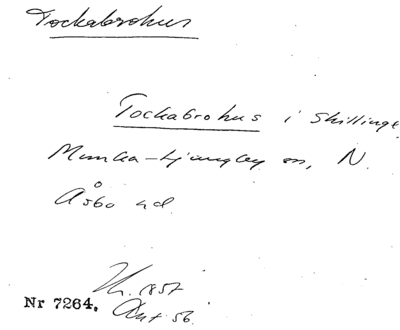 Tockabrohus
Tockabrohus i Skillinge,
Munka-Ljungby sn, N.
Åsbo hd.
1857
Nr 7264. Ant. 56.